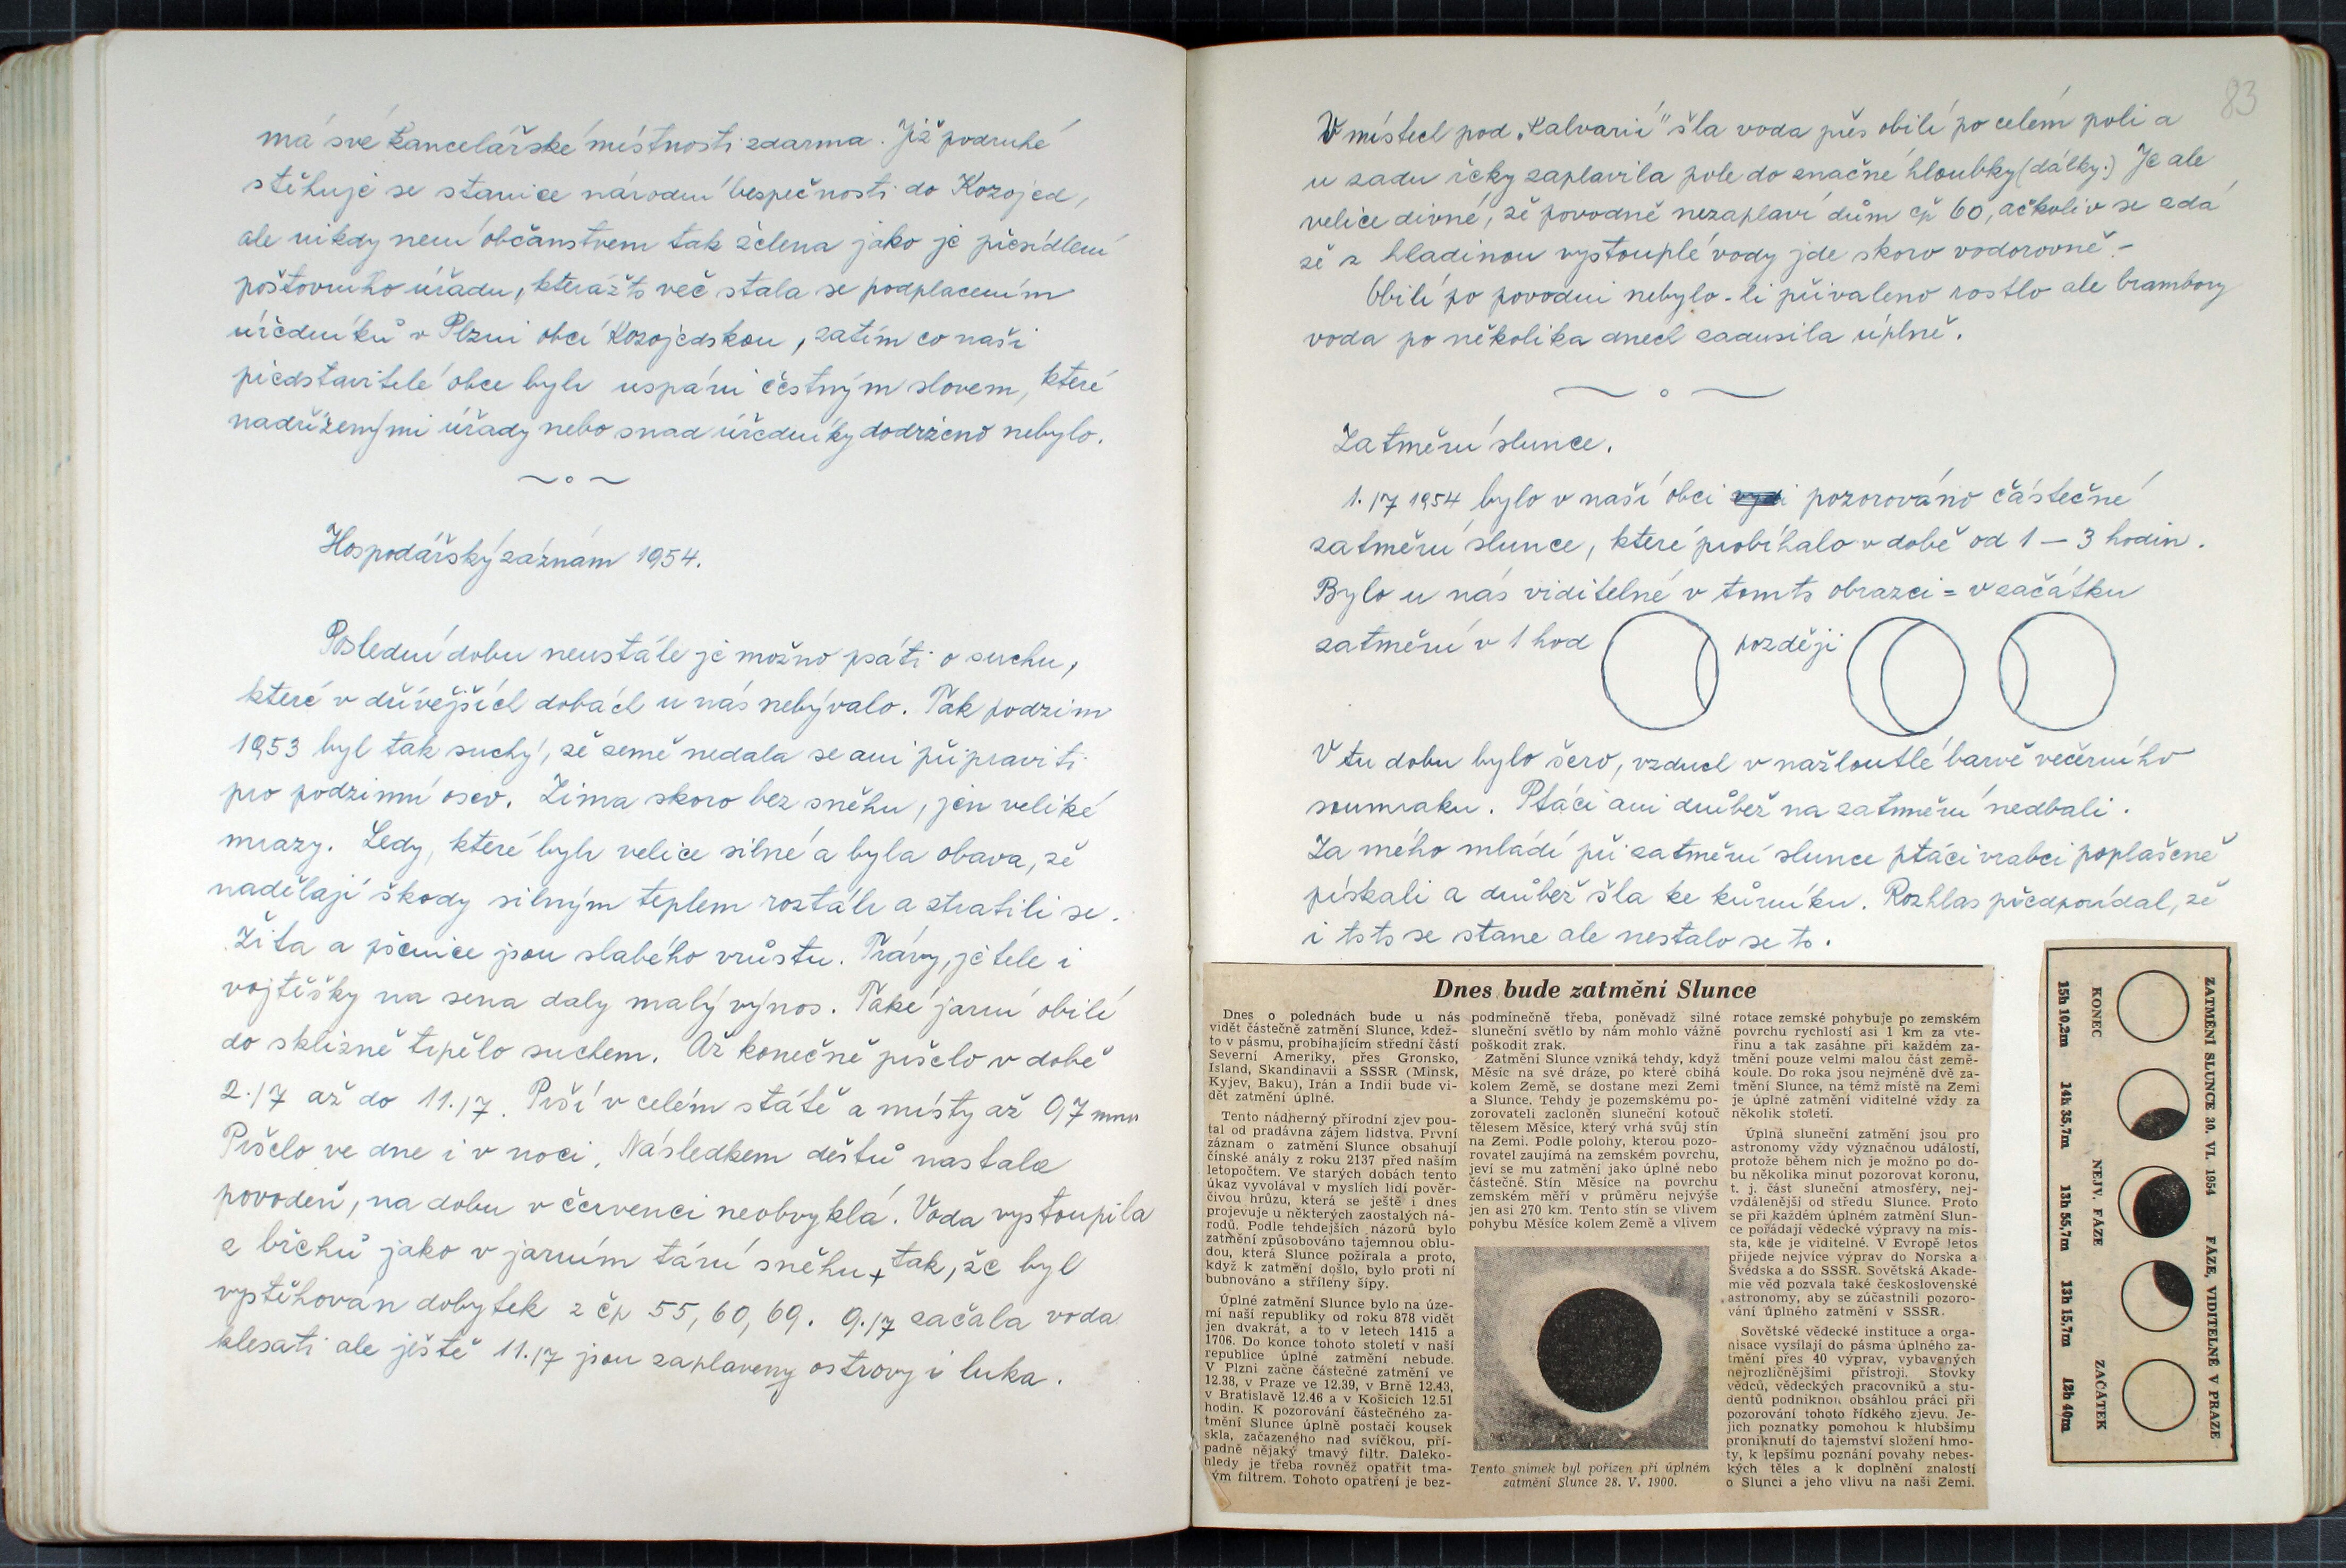 má své kancelářské místnosti zdarma. Již podruhé
stěhuje se stanice národní bezpečnosti do Kozojed,
ale nikdy není občanstvem tak želena jako je přesídlení
poštovního úřadu, kterážto věc stala se podplacením
úředníků v Plzni obcí Kozojedskou, zatím co naši
představitelé obce byli uspáni čestným slovem, které
nadřízenými úřady nebo snad úředníky dodrženo nebylo.
Hospodářský záznam 1954.
Poslední dobu neustále je možno psáti o suchu,
které v dřívějších dobách u nás nebývalo. Tak podzim
1953 byl tak suchý, že země nedala se ani připraviti
pro podzimní osev. Zima skoro bez sněhu, jen veliké
mrazy. Ledy, které byly velice silné a byla obava, že
nadělají škody silným teplem roztály a ztratili se.
Žita a pšenice jsou slabého vzrůstu. Trávy, jetele i
vojtěšky na sena daly malý výnos. Také jarní obilí
do sklizně trpělo suchem. Až konečně pršelo v době
2./7 až do 11./7. Prší v celém státě a místy až 97 mm
Pršelo ve dne i v noci. Následkem deštů nastala
povodeň, na dobu v červenci neobvyklá. Voda vystoupila
z břehů jako v jarním tání sněhu + tak, že byl
vystěhován dobytek z čp 55, 60, 69. 9./7 začala voda
klesati ale ještě 11./7 jsou zaplaveny ostrovy i luka.
83
V místech pod „Kalvarií" šla voda přes obilí po celém poli a
u zadu řeky zaplavila pole do značné hloubky (dálky.) Je ale
velice divné, že povodně nezaplaví dům čp 60, ačkoliv se zdá
že s hladinou vystouplé vody jde skoro vodorovně –
Obilí po povodni nebylo-li přivaleno rostlo ale brambory
voda po několika dnech zadusila úplně.
Zatmění slunce.
1./7 1954 bylo v naší obci pozorováno částečné
zatmění slunce, které probíhalo v době od 1 – 3 hodin.
Bylo u nás viditelné v tomto obrazci = v začátku
zatmění v 1 hod později
V tu dobu bylo šero, vzduch v nažloutlé barvě večerního
soumraku. Ptáci ani drůbež na zatmění nedbali.
Za mého mládí při zatmění slunce ptáci vrabci poplašeně
pískali a drůbež šla ke kůrníku. Rozhlas předpovídal, že
i toto se stane ale nestalo se to.
Dnes bude zatmění Slunce
Dnes o polednách bude u nás
vidět částečně zatmění Slunce, kdež-
to v pásmu, probíhajícím střední částí
Severní Ameriky, přes Gronsko,
Island, Skandinavii a SSSR (Minsk,
Kyjev, Baku), Irán a Indii bude vi-
dět zatmění úplné.
Tento nádherný přírodní zjev pou-
tal od pradávna zájem lidstva. První
záznam o zatmění Slunce obsahují
čínské anály z roku 2137 před naším
letopočtem. Ve starých dobách tento
úkaz vyvolával v myslích lidí pověr-
čivou hrůzu, která se ještě i dnes
projevuje u některých zaostalých ná-
rodů. Podle tehdejších názorů bylo
zatmění způsobováno tajemnou oblu-
dou, která Slunce požírala a proto,
když k zatmění došlo, bylo proti ní
bubnováno a stříleny šípy.
Úplné zatmění Slunce bylo na úze-
mí naší republiky od roku 878 vidět
jen dvakrát, a to v letech 1415 a
1706. Do konce tohoto století v naší
republice úplné zatmění nebude.
V Plzni začne částečné zatmění ve
12.38, v Praze ve 12.39, v Brně 12.43,
v Bratislavě 12.46 a v Košicích 12.51
hodin. K pozorování částečného za-
tmění Slunce úplně postačí kousek
skla, začazeného nad svíčkou, pří-
padně nějaký tmavý filtr. Daleko-
hledy je třeba rovněž opatřit tma-
ým filtrem. Tohoto opatření je bez-
podmínečně třeba, poněvadž silné
sluneční světlo by nám mohlo vážně
poškodit zrak.
Zatmění Slunce vzniká tehdy, když
Měsíc na své dráze, po které obíhá
kolem Země, se dostane mezi Zemi
a Slunce. Tehdy je pozemskému po-
zorovateli zacloněn sluneční kotouč
tělesem Měsíce, který vrhá svůj stín
na Zemi. Podle polohy, kterou pozo-
rovatel zaujímá na zemském povrchu,
jeví se mu zatmění jako úplné nebo
částečné. Stín Měsíce na povrchu
zemském měří v průměru nejvýše
jen asi 270 km. Tento stín se vlivem
pohybu Měsíce kolem Země a vlivem
Tento snímek byl pořízen při úplném
zatmění Slunce 28. V. 1900.
rotace zemské pohybuje po zemském
povrchu rychlostí asi 1 km za vte-
řinu a tak zasáhne při každém za-
tmění pouze velmi malou část země-
koule. Do roka jsou nejméně dvě za-
tmění Slunce, na témž místě na Zemi
je úplné zatmění viditelné vždy za
několik století.
Úplná sluneční zatmění jsou pro
astronomy vždy význačnou událostí,
protože během nich je možno po do-
bu několika minut pozorovat koronu,
t. j. část sluneční atmosféry, nej-
vzdálenější od středu Slunce. Proto
se při každém úplném zatmění Slun-
ce pořádají vědecké výpravy na mís-
ta, kde je viditelné. V Evropě letos
přijede nejvíce výprav do Norska a
Švédska a do SSSR. Sovětská Akade-
mie věd pozvala také československé
astronomy, aby se zúčastnili pozoro-
vání úplného zatmění v SSSR.
Sovětské vědecké instituce a orga-
nisace vysílají do pásma úplného za-
tmění přes 40 výprav, vybavených
nejrozličnějšími přístroji. Stovky
vědců, vědeckých pracovníků a stu-
dentů podniknou obsáhlou práci při
pozorování tohoto řídkého zjevu. Je-
jich poznatky pomohou k hlubšímu
proniknutí do tajemství složení hmo-
ty, k lepšímu poznání povahy nebes-
kých těles a k doplnění znalostí
o Slunci a jeho vlivu na naši Zemi.
ZATMĚNÍ SLUNCE 30. VI. 1954 FÁZE, VIDITELNÉ V PRAZE
KONEC NEJV. FÁZE ZAČÁTEK
15h 10,2m 14h 35,7m 13h 55,7m 13h 15,7m 12h 40m